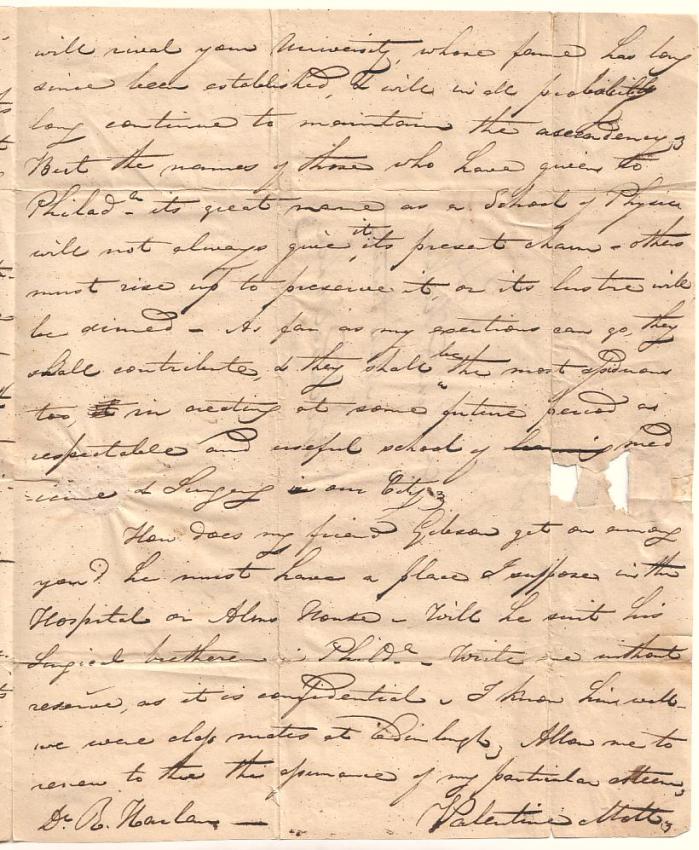 will rival your University, whose fame has long
since been established, & will in all probability
long continue to maintain the ascendency,
But the names of those who have given to
Philad.a its great name as a School of Physic
will not always give it, its present charm - others
must rise up to preserve it, or its lustre will
be dimed - As far as my exertions can go, they
shall contribute, & they shall be the most
too, in erecting at some future period as
respectable and useful school of med
icine & Surgery in our City,
How does my friend Gibson get on among
you? he must have a place I suppose in the
Hospital or Alms House - Will he suit his
Surgical bretheren in Philda. - Write me without
reserve, as it is confidential - I know him well -
we were class mates at Edinburgh, Allow me to
renew to thee the assurance of my particular esteem,
Dr. R. Harlan - Valentine Mott